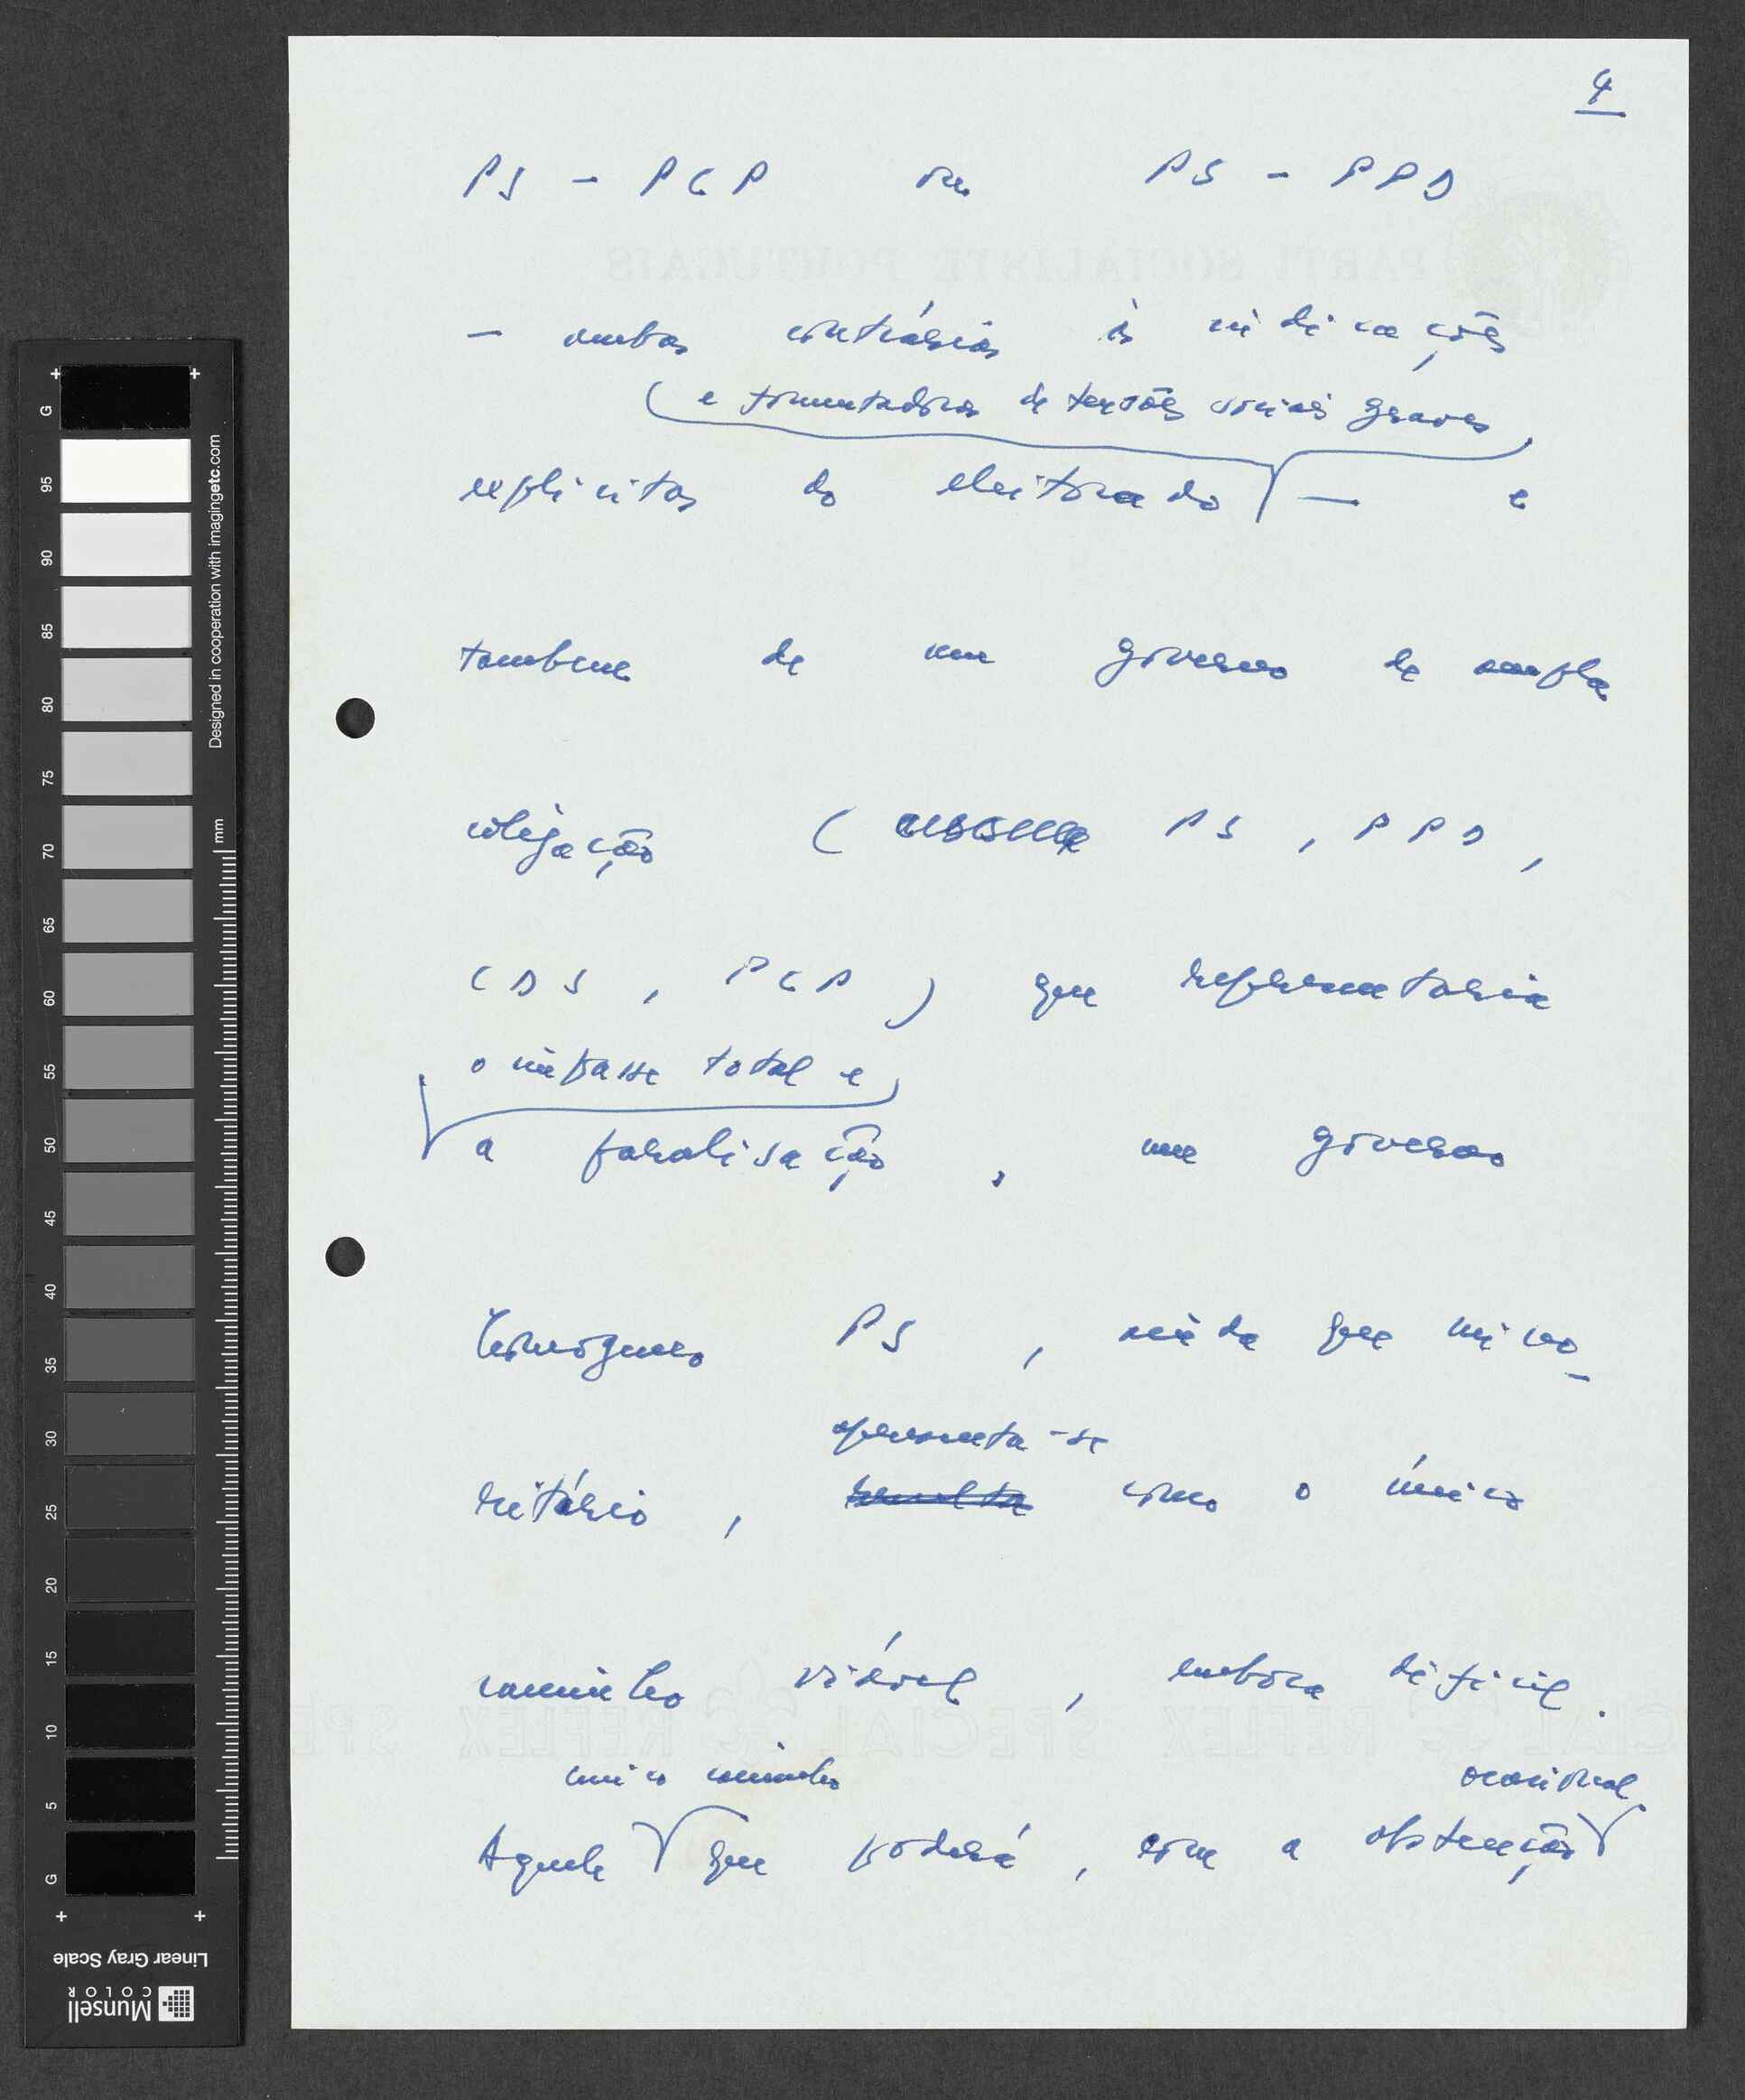 4
PS - PCP ou PS - PPD
PARTI SOCIALISTE PORTUGAIS
- ambas contrárias às indicações
(e fomentadoras de tensões sociais graves)
explicitas do eleitorado — e
tambem de um governo de ampla
coligação ( PS, PPD,
CDS, PCP) que representaria
o impasse total e
a paralisação, um governo
homogeneo PS, ainda que mino-
apresenta-se
ritário, resulta como o único
caminho viável, embora dificil.
SPECIAL REFLEX SPECIAL REFLEX SPE
unico caminho ocasional
Aquele que poderá, com a abstenção
Designed in cooperation with imagingetc.com
mm
G 95 90 85 80 75 70 65 60 55 50 45 40 35 30 25 20 15 10 5 G
Linear Gray Scale
Munsell
COLOR